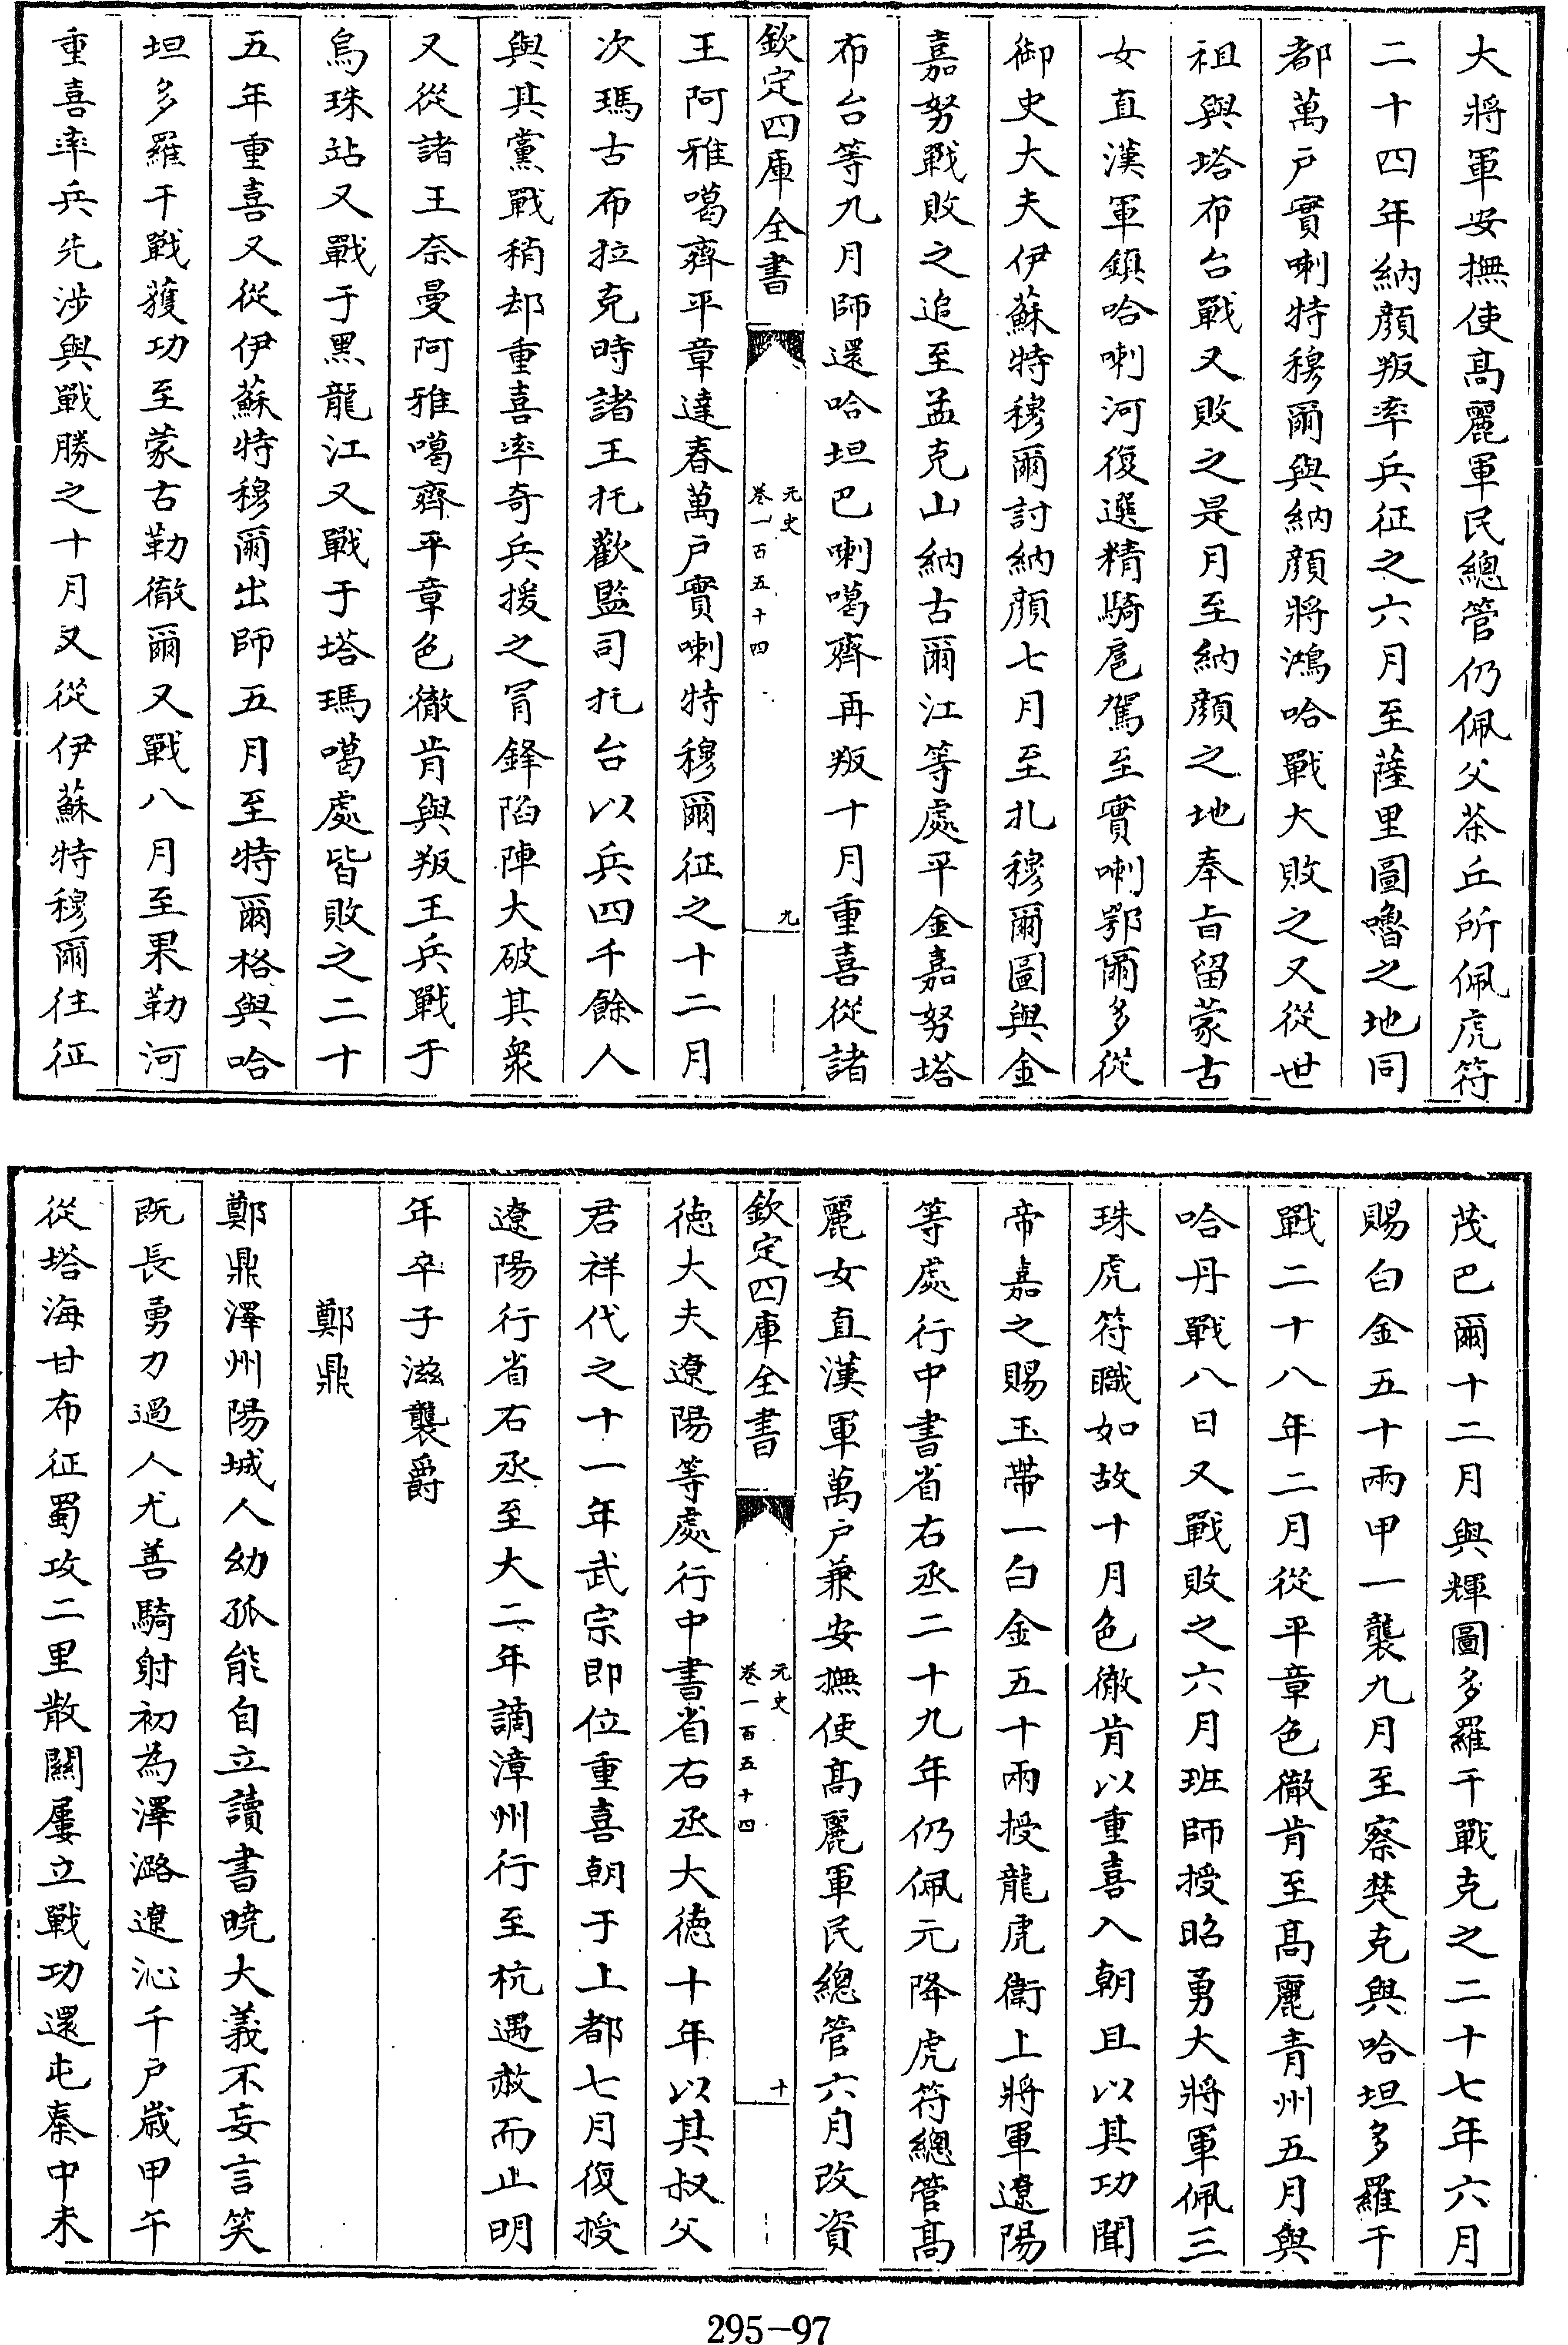 大將軍安撫使髙麗軍民總管仍佩父茶丘所佩虎符
二十四年納顔叛率兵征之六月至薩里圖嚕之地同
都萬戸實喇特穆爾與納顔將鴻哈戰大敗之又從世
祖與塔布台戰又敗之是月至納顔之地奉㫖留蒙古
女直漢軍鎮哈喇河復選精騎扈駕至實喇鄂爾多從
御史大夫伊蘇特穆爾討納顔七月至扎穆爾圖與金
嘉努戰敗之追至孟克山納古爾江等處平金嘉努塔
布台等九月師還哈坦巴喇噶齊再叛十月重喜從諸
欽定四庫全書
元史
卷一百五十四
九
王阿雅噶齊平章達春萬戸實喇特穆爾征之十二月
次瑪古布拉克時諸王托歡監司托台以兵四千餘人
與其黨戰稍却重喜率奇兵援之冒鋒陷陣大破其衆
又從諸王奈曼阿雅噶齊平章色徹肯與叛王兵戰于
烏珠站又戰于黑龍江又戰于塔瑪噶處皆敗之二十
五年重喜又從伊蘇特穆爾出師五月至特爾格與哈
坦多羅干戰獲功至蒙古勒徹爾又戰八月至果勒河
重喜率兵先涉與戰勝之十月又從伊蘇特穆爾往征
茂巴爾十二月與輝圖多羅干戰克之二十七年六月
賜白金五十兩甲一襲九月至察焚克與哈坦多羅干
戰二十八年二月從平章色徹肯至髙麗青州五月與
哈丹戰八日又戰敗之六月班師授昭勇大將軍佩三
珠虎符職如故十月色徹肯以重喜入朝且以其功聞
帝嘉之賜玉帶一白金五十兩授龍虎衛上將軍遼陽
等處行中書省右丞二十九年仍佩元降虎符總管髙
麗女直漢軍萬戸兼安撫使髙麗軍民總管六月改資
欽定四庫全書
元史
卷一百五十四
十
徳大夫遼陽等處行中書省右丞大徳十年以其叔父
君祥代之十一年武宗即位重喜朝于上都七月復授
遼陽行省右丞至大二年謫漳州行至杭遇赦而止明
年卒子滋襲爵
鄭鼎
鄭鼎澤州陽城人幼孤能自立讀書曉大義不妄言笑
既長勇力過人尤善騎射初為澤潞遼沁千戸嵗甲午
從塔海甘布征蜀攻二里散關屢立戰功還屯秦中未
295-97